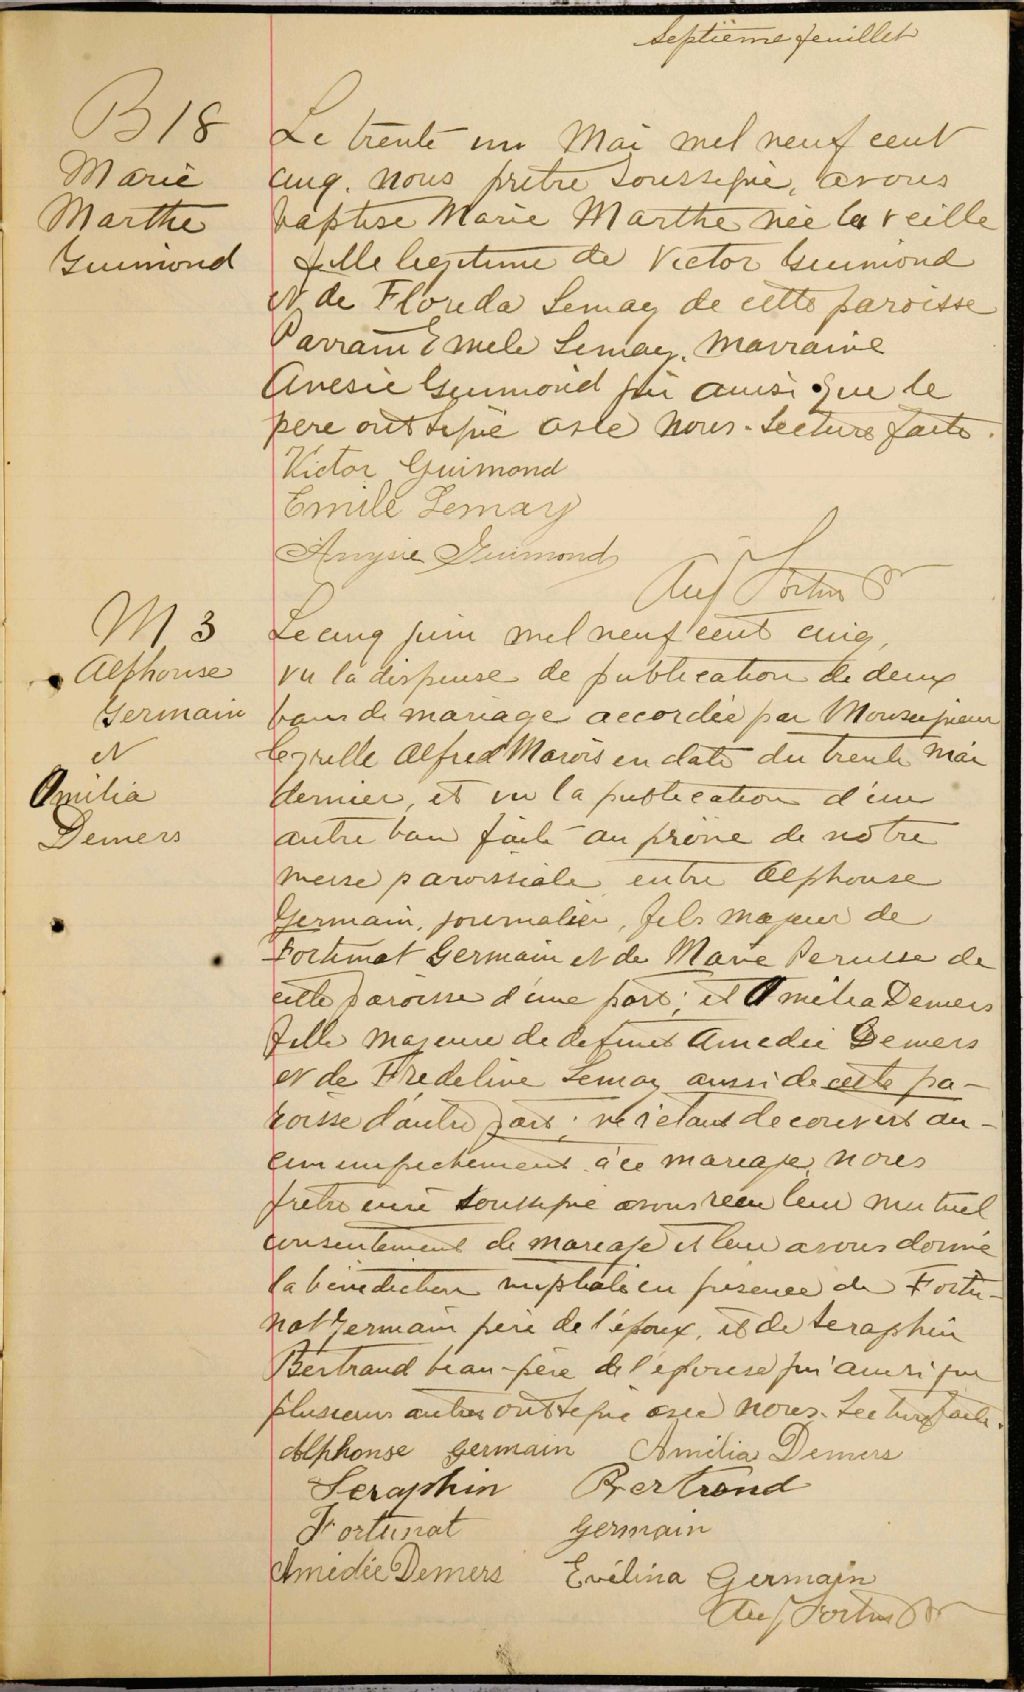 Septième feuillet
B 18
Marie
Marthe
Guimond
Le trente un Mai mil neuf cent
cinq, nous prêtre soussigné, avons
baptisé Marie Marthe née la veille
fille légitime de Victor Guimond
et de Florida Lemay de cette paroisse
Parrain Emile Lemay, marraine
Anésie Guimond qui ainsi que le
père ont signé avec nous. Lecture faite.
Victor Guimond
Emile Lemay
Anysie Guimond
Aug Fortin Ptr
M 3
Alphonse
Germain
et
Amilia
Demers
Le cinq juin mil neuf cent cinq,
vu la dispense de publication de deux
bans de mariage accordée par Monseigneur
Cyrille Alfred Marois en date du trente mai
dernier, et vu la publication d'un
autre ban faite au prône de notre
messe paroissiale entre Alphonse
Germain, journalier, fils majeur de
Fortunat Germain et de Marie Perusse de
cette paroisse d'une part; et Amilia Demers
fille majeure de defunt Amedée Demers
et de Fredeline Lemay aussi de cette pa-
roisse d'autre part; ne s'étant découvert au-
cun empêchement à ce mariage, nous
prêtre curé soussigné avons reçu leur mutuel
consentement de mariage et leur avons donné
la bénédiction nuptiale en présence de Fortu-
nat Germain père de l'époux, et de Seraphin
Bertrand beau-père de l'épouse qui ainsi que
plusieurs autres ont signé avec nous. Lecture faite.
Alphonse Germain Amilia Demers
Seraphin Bertrand
Fortunat Germain
Amédée Demers Evélina Germain
Aug Fortin Ptr